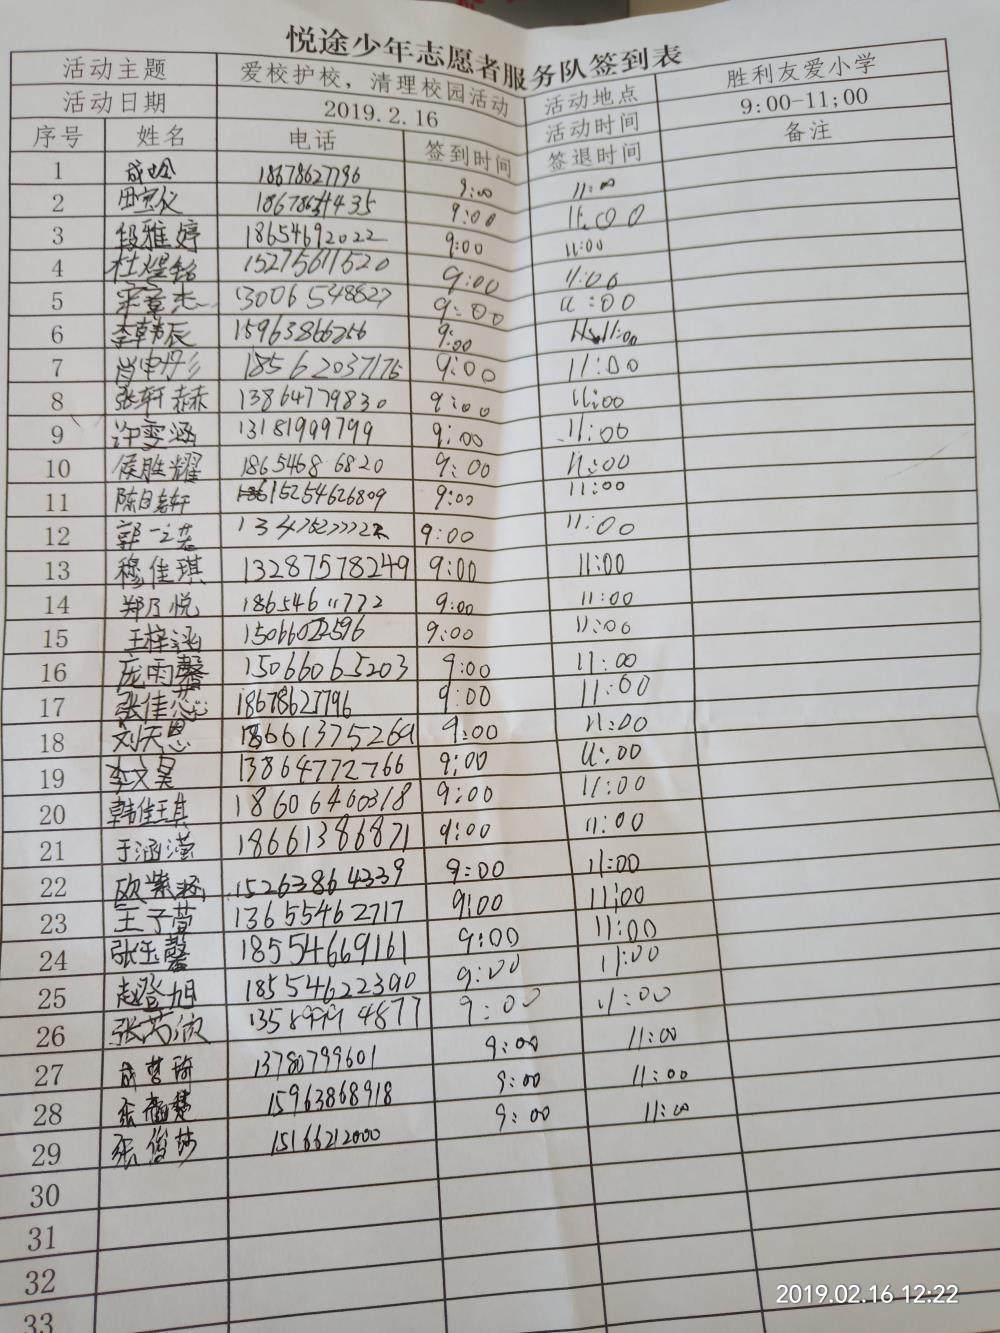 悦途少年志愿者服务队签到表
活动主题 爱校护校，清理校园活动 活动地点 胜利友爱小学
活动日期 2019.2.16 活动时间 9:00-11;00
序号 姓名 电话 签到时间 签退时间 备注
1 18678627796 9:00 11:00
2 田宝仪 9:00 11:00
3 段雅婷 18654692022 9:00 11:00
4 杜煜铭 15275611520 9:00 11:00
5 宋章杰 13006548827 9:00 11:00
6 李韩辰 15963866256 9:00 11:00
7 肖申丹彡 18562037175 9:00 11:00
8 张轩赫 13864779830 9:00 11:00
9 许雯涵 13181999799 9:00 11:00
10 侯胜耀 18654686820 9:00 11:00
11 15254626809 9:00 11:00
12 郭一诺 9:00 11:00
13 穆佳琪 13287578249 9:00 11:00
14 郑乃悦 18654611772 9:00 11:00
15 王梓涵 15066022596 9:00 11:00
16 庞雨馨 15066065203 9:00 11:00
17 张佳蕊 18678627796 9:00 11:00
18 刘天恩 18661375269 9:00 11:00
19 李文昊 13864772766 9:00 11:00
20 韩佳琪 18606460318 9:00 11:00
21 于涵滢 18661386871 9:00 11:00
22 欧紫 15263864339 9:00 11:00
23 王子萱 13655462717 9:00 11:00
24 张钰馨 18554669161 9:00 11:00
25 赵登旭 18554622390 9:00 11:00
26 张芮 13589994877 9:00 11:00
27 13780799601 9:00 11:00
28 15963868918 9:00 11:00
29 张俊莎 15166212000 9:00 11:00
30
31
32
33
2019.02.16 12:22